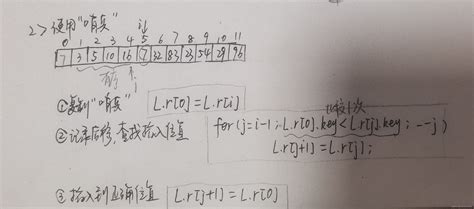 2> 使用“哨兵”
i
0 1 2 3 4 5 6 7 8 9 10 11
7 3 5 10 16 7 32 83 23 54 29 96
有序
① 复制“哨兵” L.r[0]=L.r[i]
比较1次
② 记录后移,查找插入位置 for(j=i-1;L.r[0].key<L.r[j].key;--j)
L.r[j+1]=L.r[j];
③ 插入到正确位置 L.r[j+1]=L.r[0]